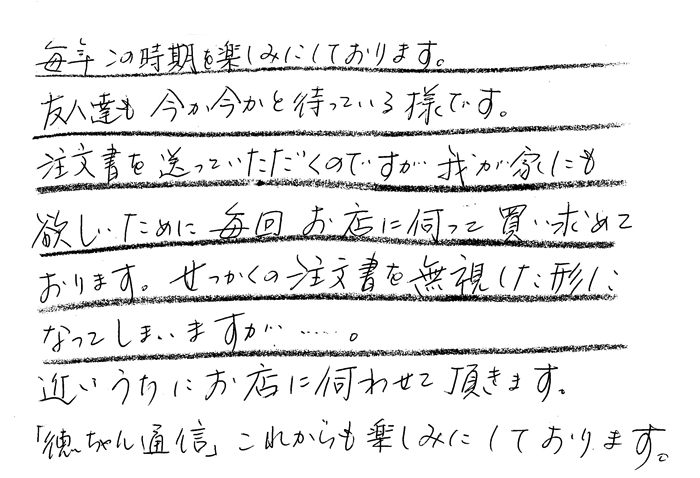 毎年この時期を楽しみにしております。
友人達も今か今かと待っている様です。
注文書を送っていただくのですが我が家にも
欲しいために毎回お店に伺って買い求めて
おります。せっかくの注文書を無視した形に
なってしまいますが……。
近いうちにお店に伺わせて頂きます。
「徳ちゃん通信」これからも楽しみにしております。